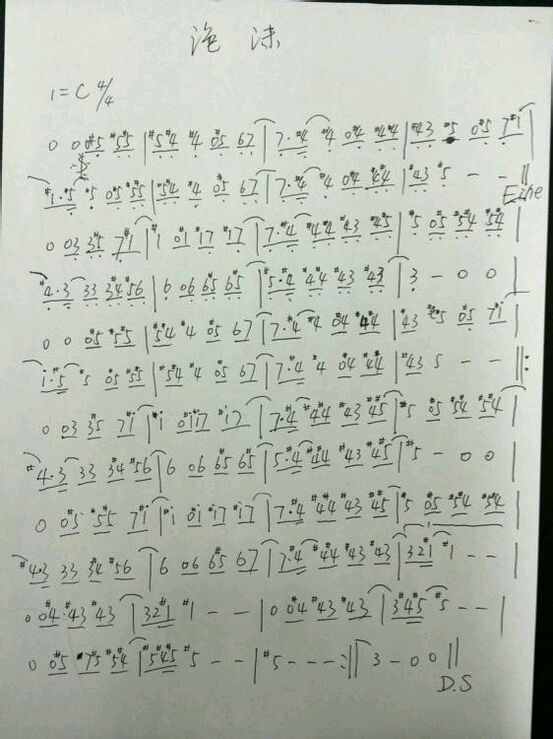 泡沫
1=C 4/4
0 0 0#5 #5#5 | #5#4 #4 0#5 67 | 7·#4 #4 0#4 #4#4 | #43 #5 0#5 7#1 |
#1·#5 #5 0#5 #5#5 | #5#4 #4 0#5 67 | 7·#4 #4 0#4 #4#4 | #43 #5 - - ||
Fine
0 03 3#5 7#1 | #1 0#1 #17 #17 | 7·#4 #4#4 #43 #4#5 | #5 0#5 #5#4 #5#4 |
#4·3 33 3#4 #56 | 6 06 6#5 6#5 | #5·#4 #4#4 #43 #43 | 3 - 0 0 |
0 0 0#5 #5#5 | #5#4 #4 0#5 67 | 7·#4 #4 0#4 #4#4 | #43 #5 0#5 7#1 |
#1·#5 #5 0#5 #5#5 | #5#4 #4 0#5 67 | 7·#4 #4 0#4 #4#4 | #43 5 - - ||:
0 03 3#5 7#1 | #1 0#1 #17 #17 | 7·#4 #4#4 #43 #4#5 | #5 0#5 #5#4 #5#4 |
#4·3 33 3#4 #56 | 6 06 6#5 6#5 | #5·#4 #4#4 #43 #4#5 | #5 - 0 0 |
0 0#5 #5#5 7#1 | #1 0#1 #17 #17 | 7·#4 #4#4 #43 #4#5 | #5 0#5 #5#4 #5#4 |
#43 33 3#4 #56 | 6 06 6#5 67 | 7·#4 #4#4 #43 #43 | 32#1 #1 - - |
0 0#4· #43 #43 | 32#1 #1 - - | 0 0#4 #43 #43 | 3#4#5 #5 - - |
0 0#5 #7#5 #5#4 | #5#4#5 #5 - - | #5 - - - :|| 3 - 0 0 ||
D.S